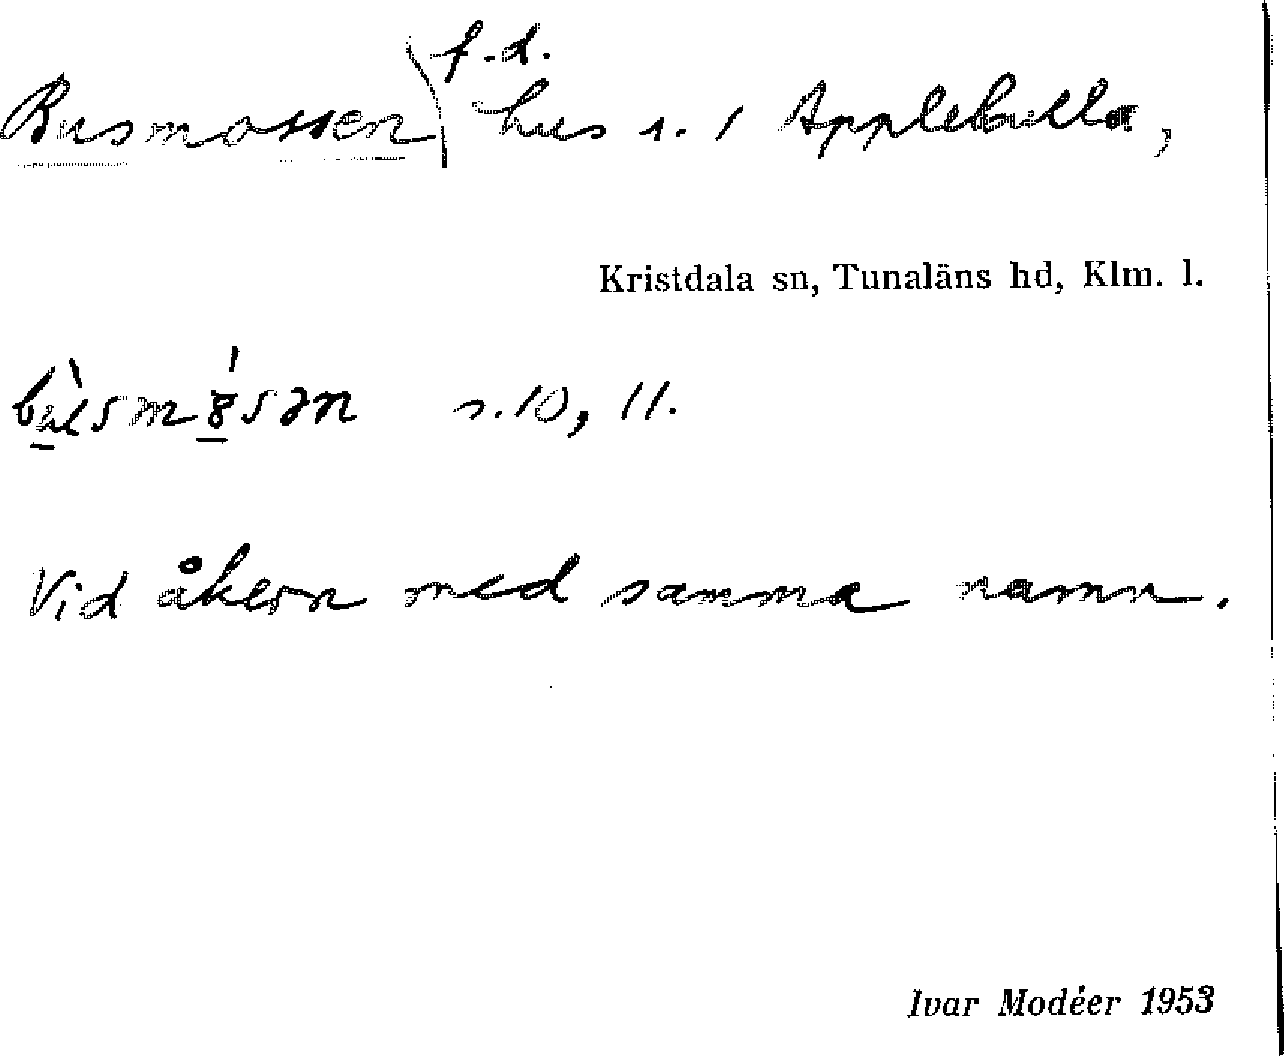 Busmossen f.d. hus s. 1 Applekulla,
Kristdala sn, Tunaläns hd, Klm. l.
s. 10, 11.
Vid åkern med samma namn.
Ivar Modéer 1953